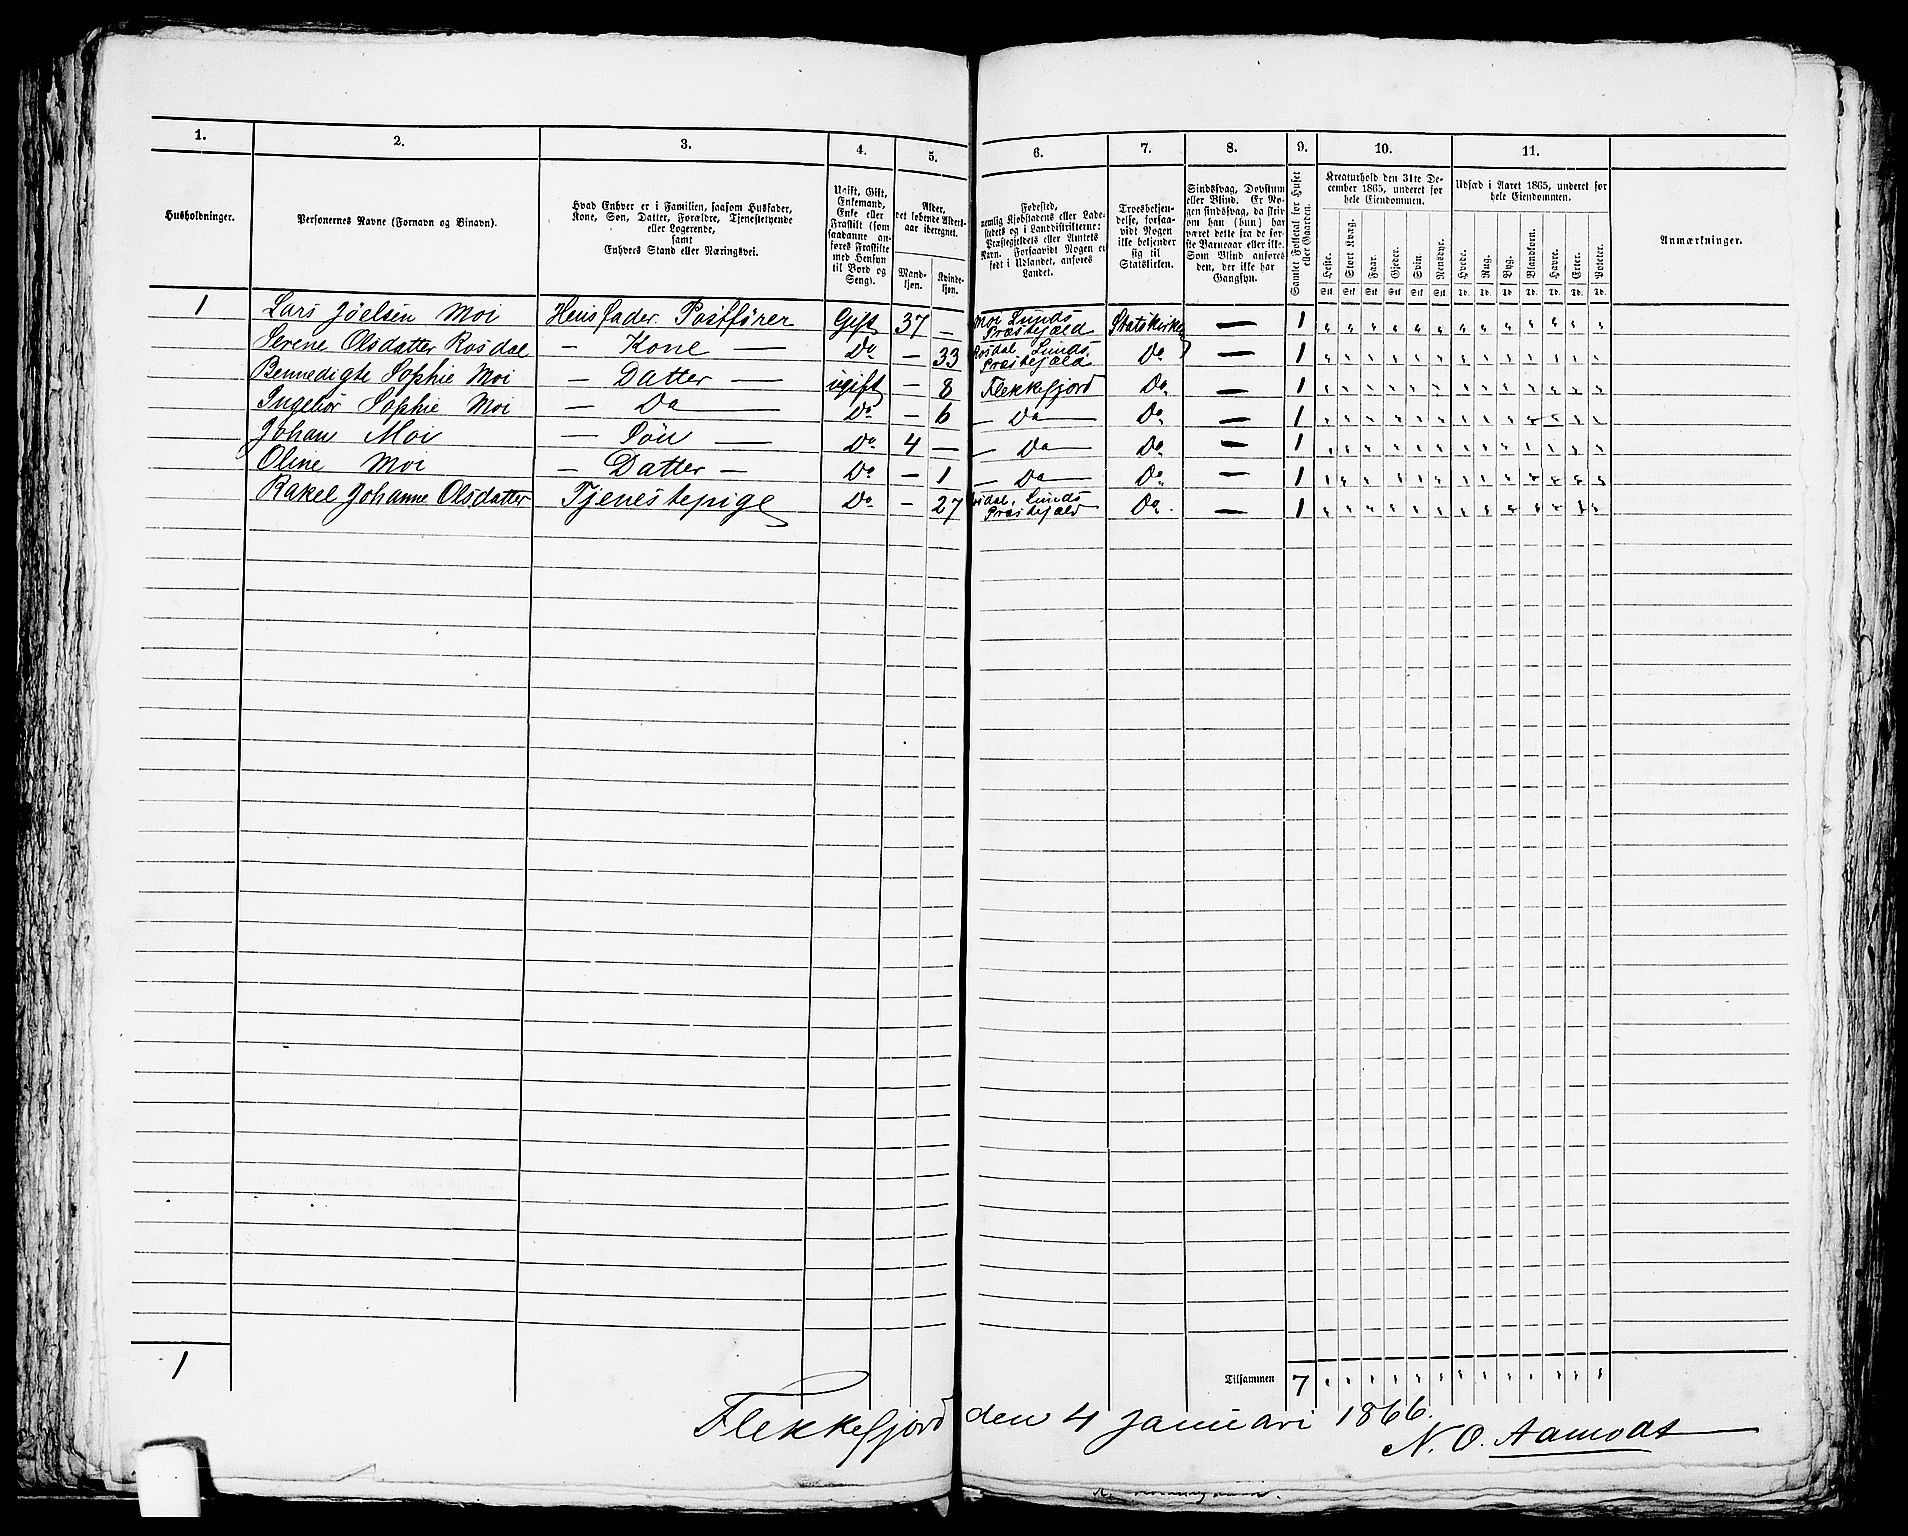 1. 2. 3. 4. 5. 6. 7. 8. 9. 10. 11.
Husholdninger.
Personernes Navne (Fornavn og Binavn).
Hvad Enhver er i Familien, saasom Husfader,
Kone, Søn, Datter, Forældre, Tjenestetyende
eller Logerende,
samt
Enhvers Stand eller Næringsvei.
Ugift, Gift,
Enkemand,
Enke eller
Fraskilt (som
saadanne an-
føres Fraskilte
med Hensyn
til Bord og
Seng).
Alder,
det løbende Alders-
aar iberegnet.
Mand-
kjøn.
Kvinde-
kjøn.
Fødested,
nemlig Kjøbstadens eller Lade-
stedets og i Landdistrikterne:
Præstegjeldets eller Amtets
Navn. Forsaavidt Nogen er
født i Udlandet, anføres
Landet.
Troesbekjen-
delse, forsaa-
vidt Nogen
ikke bekjender
sig til
Statskirken.
Sindssvag, Døvstum
eller Blind. Er No-
gen sindssvag, da skri-
ves om han (hun) har
været dette fra de før-
ste Barneaar eller ikke.
Som Blind anføres
den, der ikke har
Gangsyn.
Samlet Folketal for Huset
eller Gaarden.
Kreaturhold den 31te De-
cember 1865, underet for
hele Eiendommen.
Heste. Stort Kvæg. Faar. Gjeder. Svin. Rensdyr.
Stk Stk Stk Stk Stk Stk
Udsæd i Aaret 1865, underet for
hele Eiendommen.
Hvede. Rug. Byg. Blandkorn. Havre. Erter. Poteter.
Td. Td. Td. Td. Td. Td. Td.
Anmærkninger.
1 Lars Jöelsen Moi Huusfader. Postfører Gift 37 — Moi Lunds Præstejæld Statskirken — 1
Serene Olsdatter Rosdal — Kone — Do — 33 Rosdal Lunds Præstejæld Do — 1
Bennedigte Sophie Moi — Datter — ugift — 8 Flekkefjord Do — 1
Ingebor Sophie Moi — Do — Do — 6 — Do — Do — 1
Johan Moi — Sön — Do 4 — — Do — Do — 1
Oline Moi — Datter — Do — 1 — Do — Do — 1
Rakel Johanne Olsdatter Tjenestepige Do — 27 Rosdal. Lunds Præstejæld Do. — 1
1
Tilsammen 7
Flekkefjord den 4 Januari 1866.
N. O. Aamodt